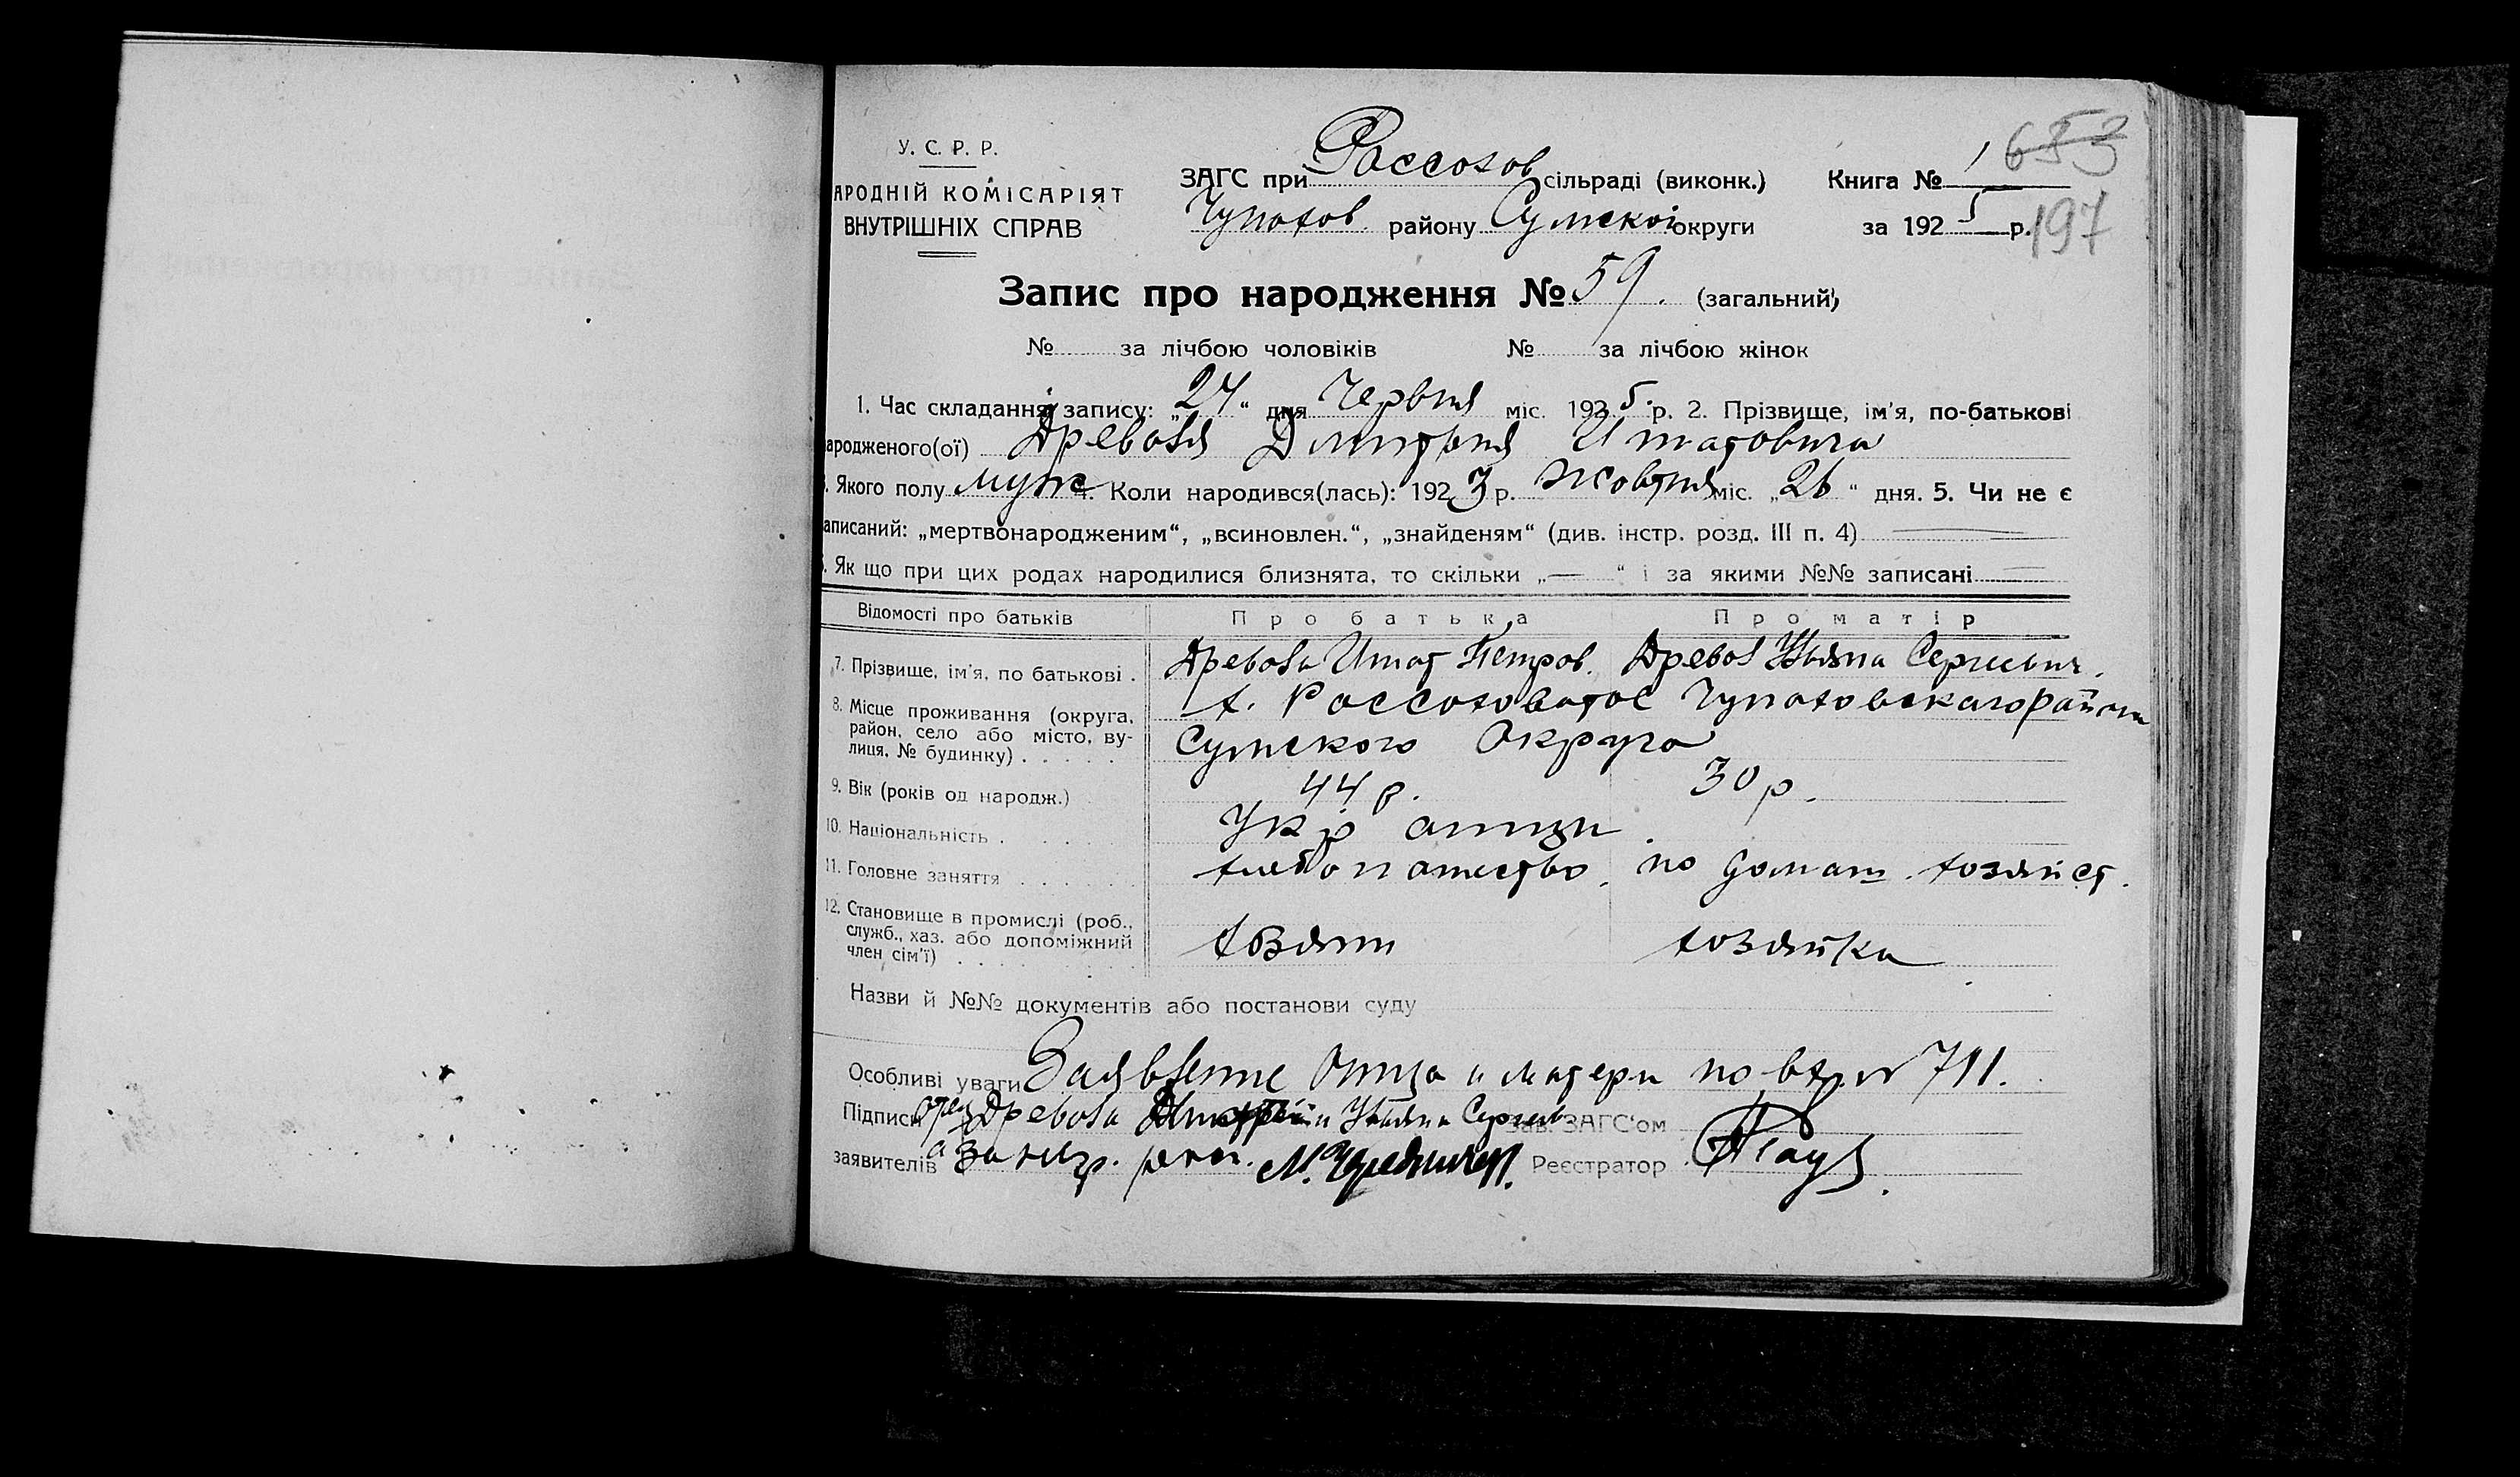 653
У. С. Р. Р.
АРОДНІЙ КОМІСАРІЯТ
ВНУТРІШНІХ СПРАВ
ЗАГС при Россохов сільраді (виконк.) Книга № 1
Чупахов. району Сумской округи за 1925 р. 197
Запис про народження № 59. (загальний)
№ за лічбою чоловіків № за лічбою жінок
1. Час складання запису: „24“ дня Червня міс. 1925 р. 2. Прізвище, ім'я, по-батькові
ародженого(ої) Древаля Дмитрия Игнатовича
. Якого полу муж 4. Коли народився(лась): 1923 р. Жовтня міс. „26“ дня. 5. Чи не є
аписаний: „мертвонародженим“, „всиновлен.“, „знайденям“ (див. інстр. розд. III п. 4)
. Як що при цих родах народилися близнята, то скільки „—“ і за якими №№ записані
Відомості про батьків Про батька Про матір
7. Прізвище, ім'я, по батькові . Древаль Игнат Петров. Древаль Ульяна Сергиевн.
8. Місце проживання (округа, район, село або місто, вулиця, № будинку) х. Россоховатое Чупаховскаго района
Сумского Округа
9. Вік (років од народж.) 44 р. 30 р.
10. Національність . Укр аинци
11. Головне заняття хлебопашество. по домаш. хозяйст.
12. Становище в промислі (роб., служб., хаз. або допоміжний член сім'ї) хозяин хозяйка
Назви й №№ документів або постанови суду
Особливі уваги Заявление Отца и матери по вх. № 711.
Підписи Древаль и Ульяна Сергиев Зав. ЗАГС'ом
заявителів За негр. расп. Реєстратор